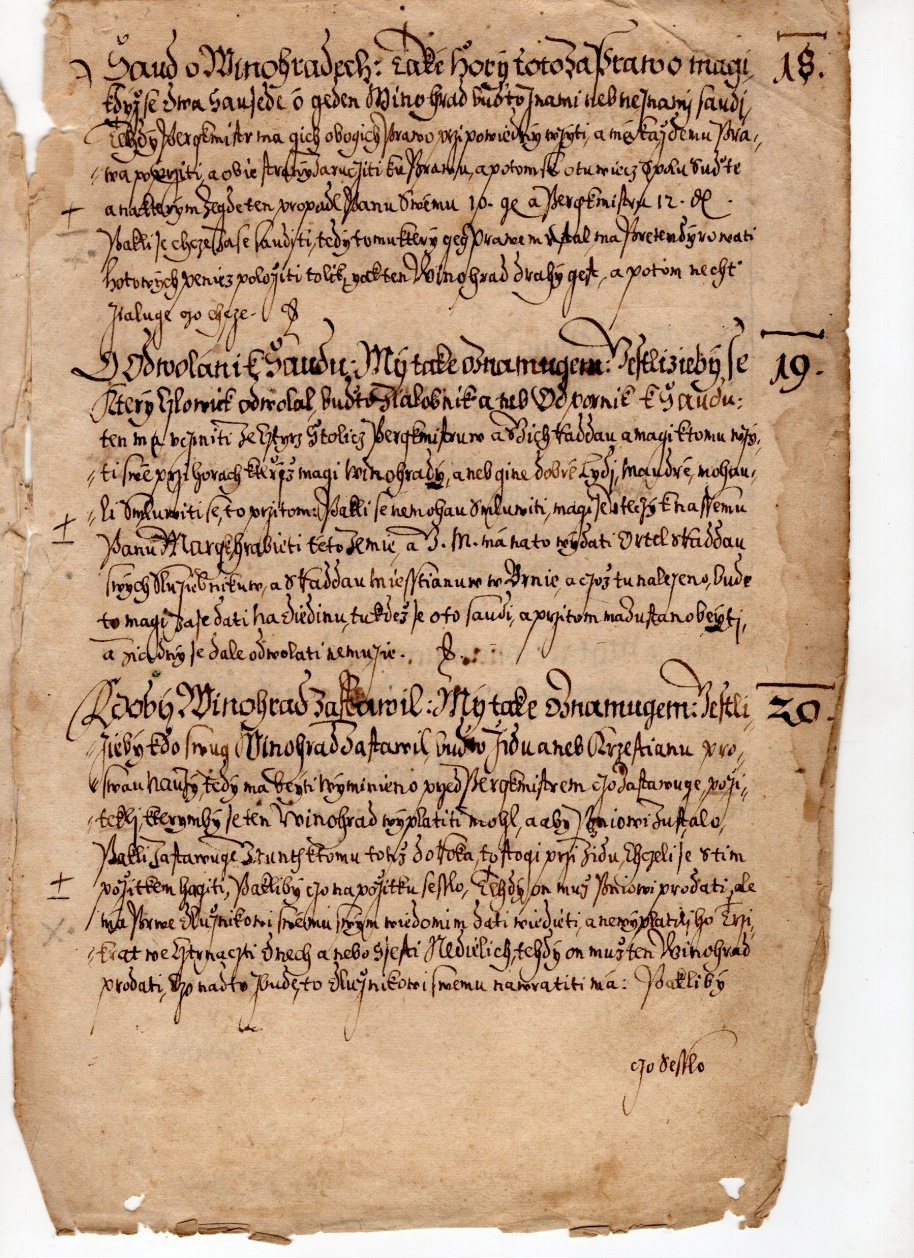 Saud o Winohradech: Take hory toto za Prawo magi 18.
kdyz se dwa saudie o geden Winohrad budto znami neb neznami saudj
Tehdy Pergkmistr ma gich obogich Prawo przipowiedny wzyti, a ma kazdemu Pra-
wa poprziti, a obie strany zaruciti ku Prawu, a potom se o tu wiecz spolu sudte
a na kterym zegde ten propadl Panu Swemu 10. a Pergkmistru 12.
Pakli se chcze zase saudyti, tedy tomu ktery geg Prawem ustal, ma Pretendyrowati
hotowych peniez poloziti tolik, yak ten Winohrad drahy gest, a potom necht
zialuge czo chcze.
O Odwolani k Saudu: My take oznamugem: Jestli zieby se 19.
ktery Czlowiek odwolal, budto Zialobnik aneb Odpornik k Saudu:
ten ma ucziniti ze cztyrz Stolicz Pergkmistruw a Bich kaddau a magi k tomu wzy-
ti sme przi horach kterzs magi Winohrady, aneb gine dobre Lydj, maudre, mohau-
li smluwiti se, to przitom: Pakli se nemohau smluwiti, magi se uteczy k nassemu
Panu Margkrabieti teto Zemie, a J. M. ma na to wydati Ortel s kaddau
swych sluziebnikuw, a s kaddau miesstianuw w Brnie, a czoz tu nalezeno bude
to magi zase dati na diedinu, tu kdez se o to saudi, a przitom ma zustano beyti,
a ziadny se dale odwolati nemuzie.
Kdoby Winohrad zastawil: My take oznamugem: Jestli 20.
zieby kdo swug Winohrad zastawil, budto Zidu aneb Krzestianu pro-
tedy ma beyti wyminieno przed Pergkmistrem czo zastawuge, pozi-
tekli, kterymby se ten Winohrad wyplatiti mohl, a aby Pniowi zustalo,
Pakli zastawuge Grunth k tomu totiz do Roka, to stogi przi Zidu, chczeli se s tim
pozitkem hagiti, Pakliby czo na pozitku seslo, Tehdy on mus Pniowi prodati, ale
ma Prwe dluznikowi swemu swym wiedomim dati wiedieti, a newyplatili ho Trzi-
krat we cztrnaczti dnech a nebo ssesti Nedielich, tehdy on mus ten Winohrad
prodati, czo nadto bude, to dluznikowi swemu nawratiti ma: Pakliby
czo seslo